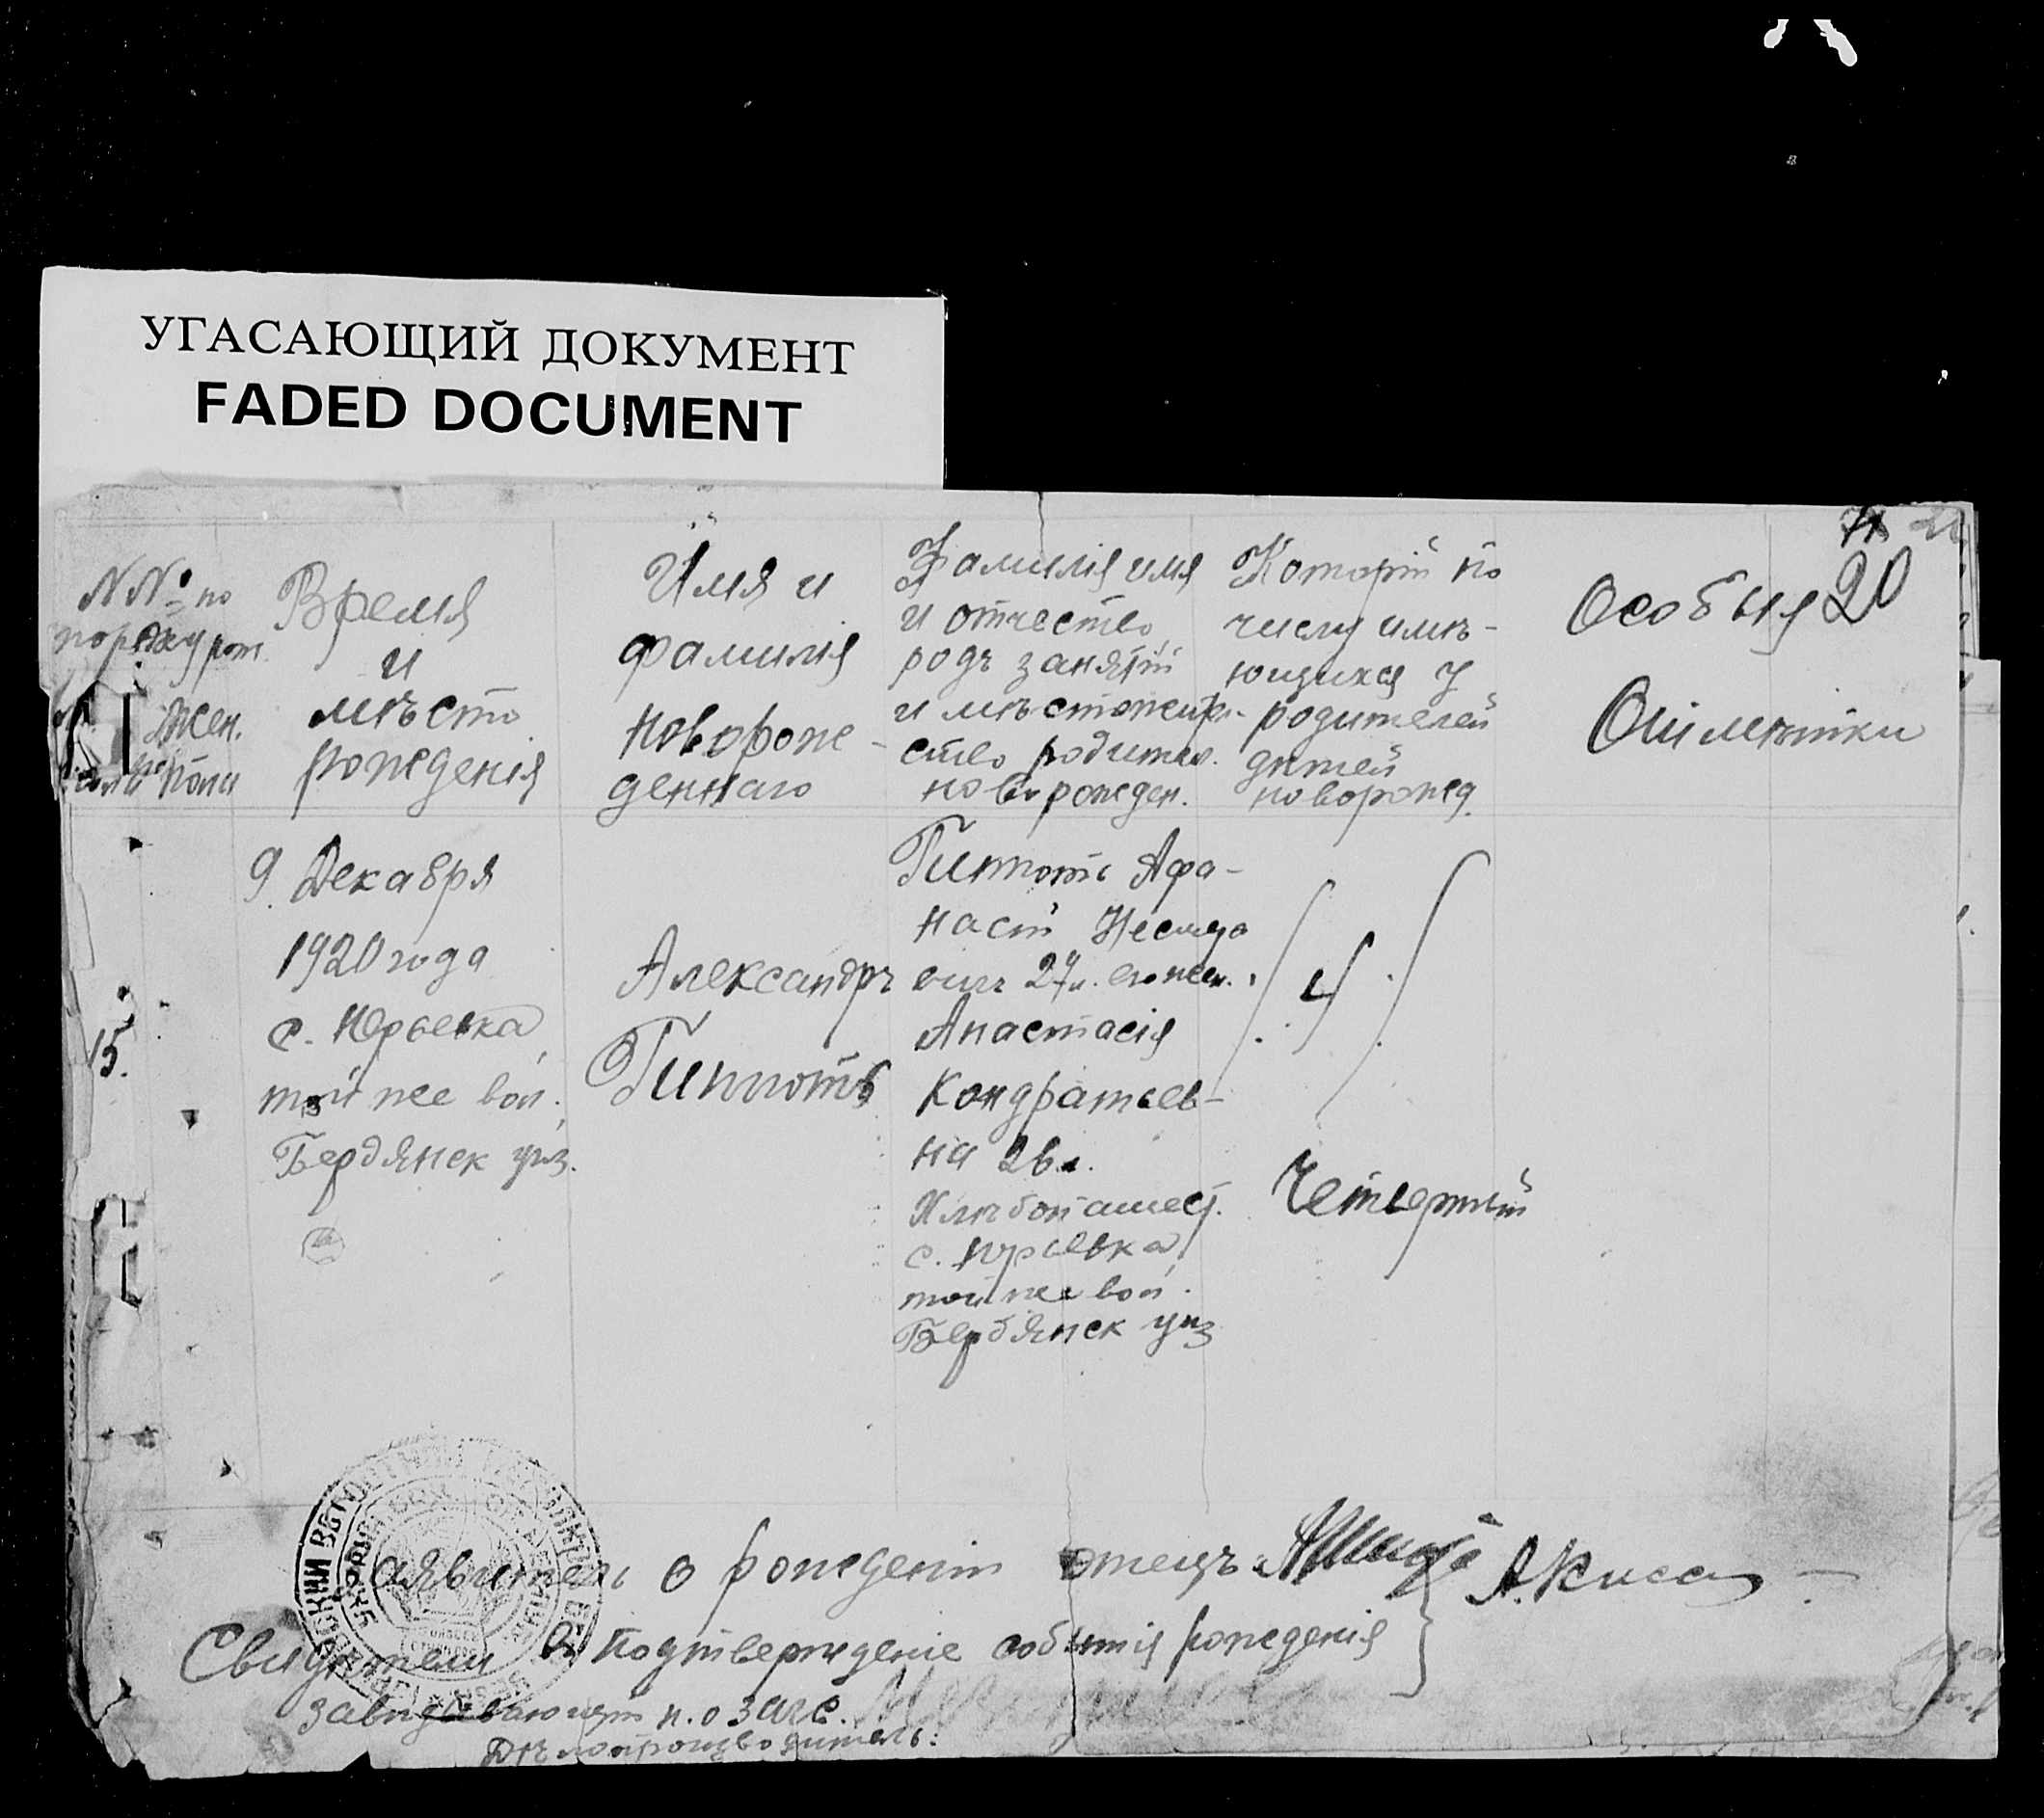 УГАСАЮЩИЙ ДОКУМЕНТ
FADED DOCUMENT
20
№№ по
порядку рож.
Жен.
пола
Время
и
мѣсто
рожденія
Имя и
фамилія
новорож-
деннаго
Фамилія имя
и отчество,
родъ занятій
и мѣстожитель-
ство родител.
новорожден.
Который по
числу имѣ-
ющихся у
родителей
дѣтей
новорожд.
Особыя
Отмѣтки
15.
9 Декабря
1920 года
с. Юрьевка
той же вол.
Бердянск уѣз.
Александръ
Афа-
насій
27 л. его жен.
Анастасія
Кондратьев-
на 26 л.
Хлѣбопашест.
с. Юрьевка,
той же вол.
Бердянск уѣз
4
Четвертый
аявитель о рожденіи отецъ
Свидѣтели въ подтвержденіе событія рожденія
завѣдывающій п. о загс.
Дѣлопроизводитель: